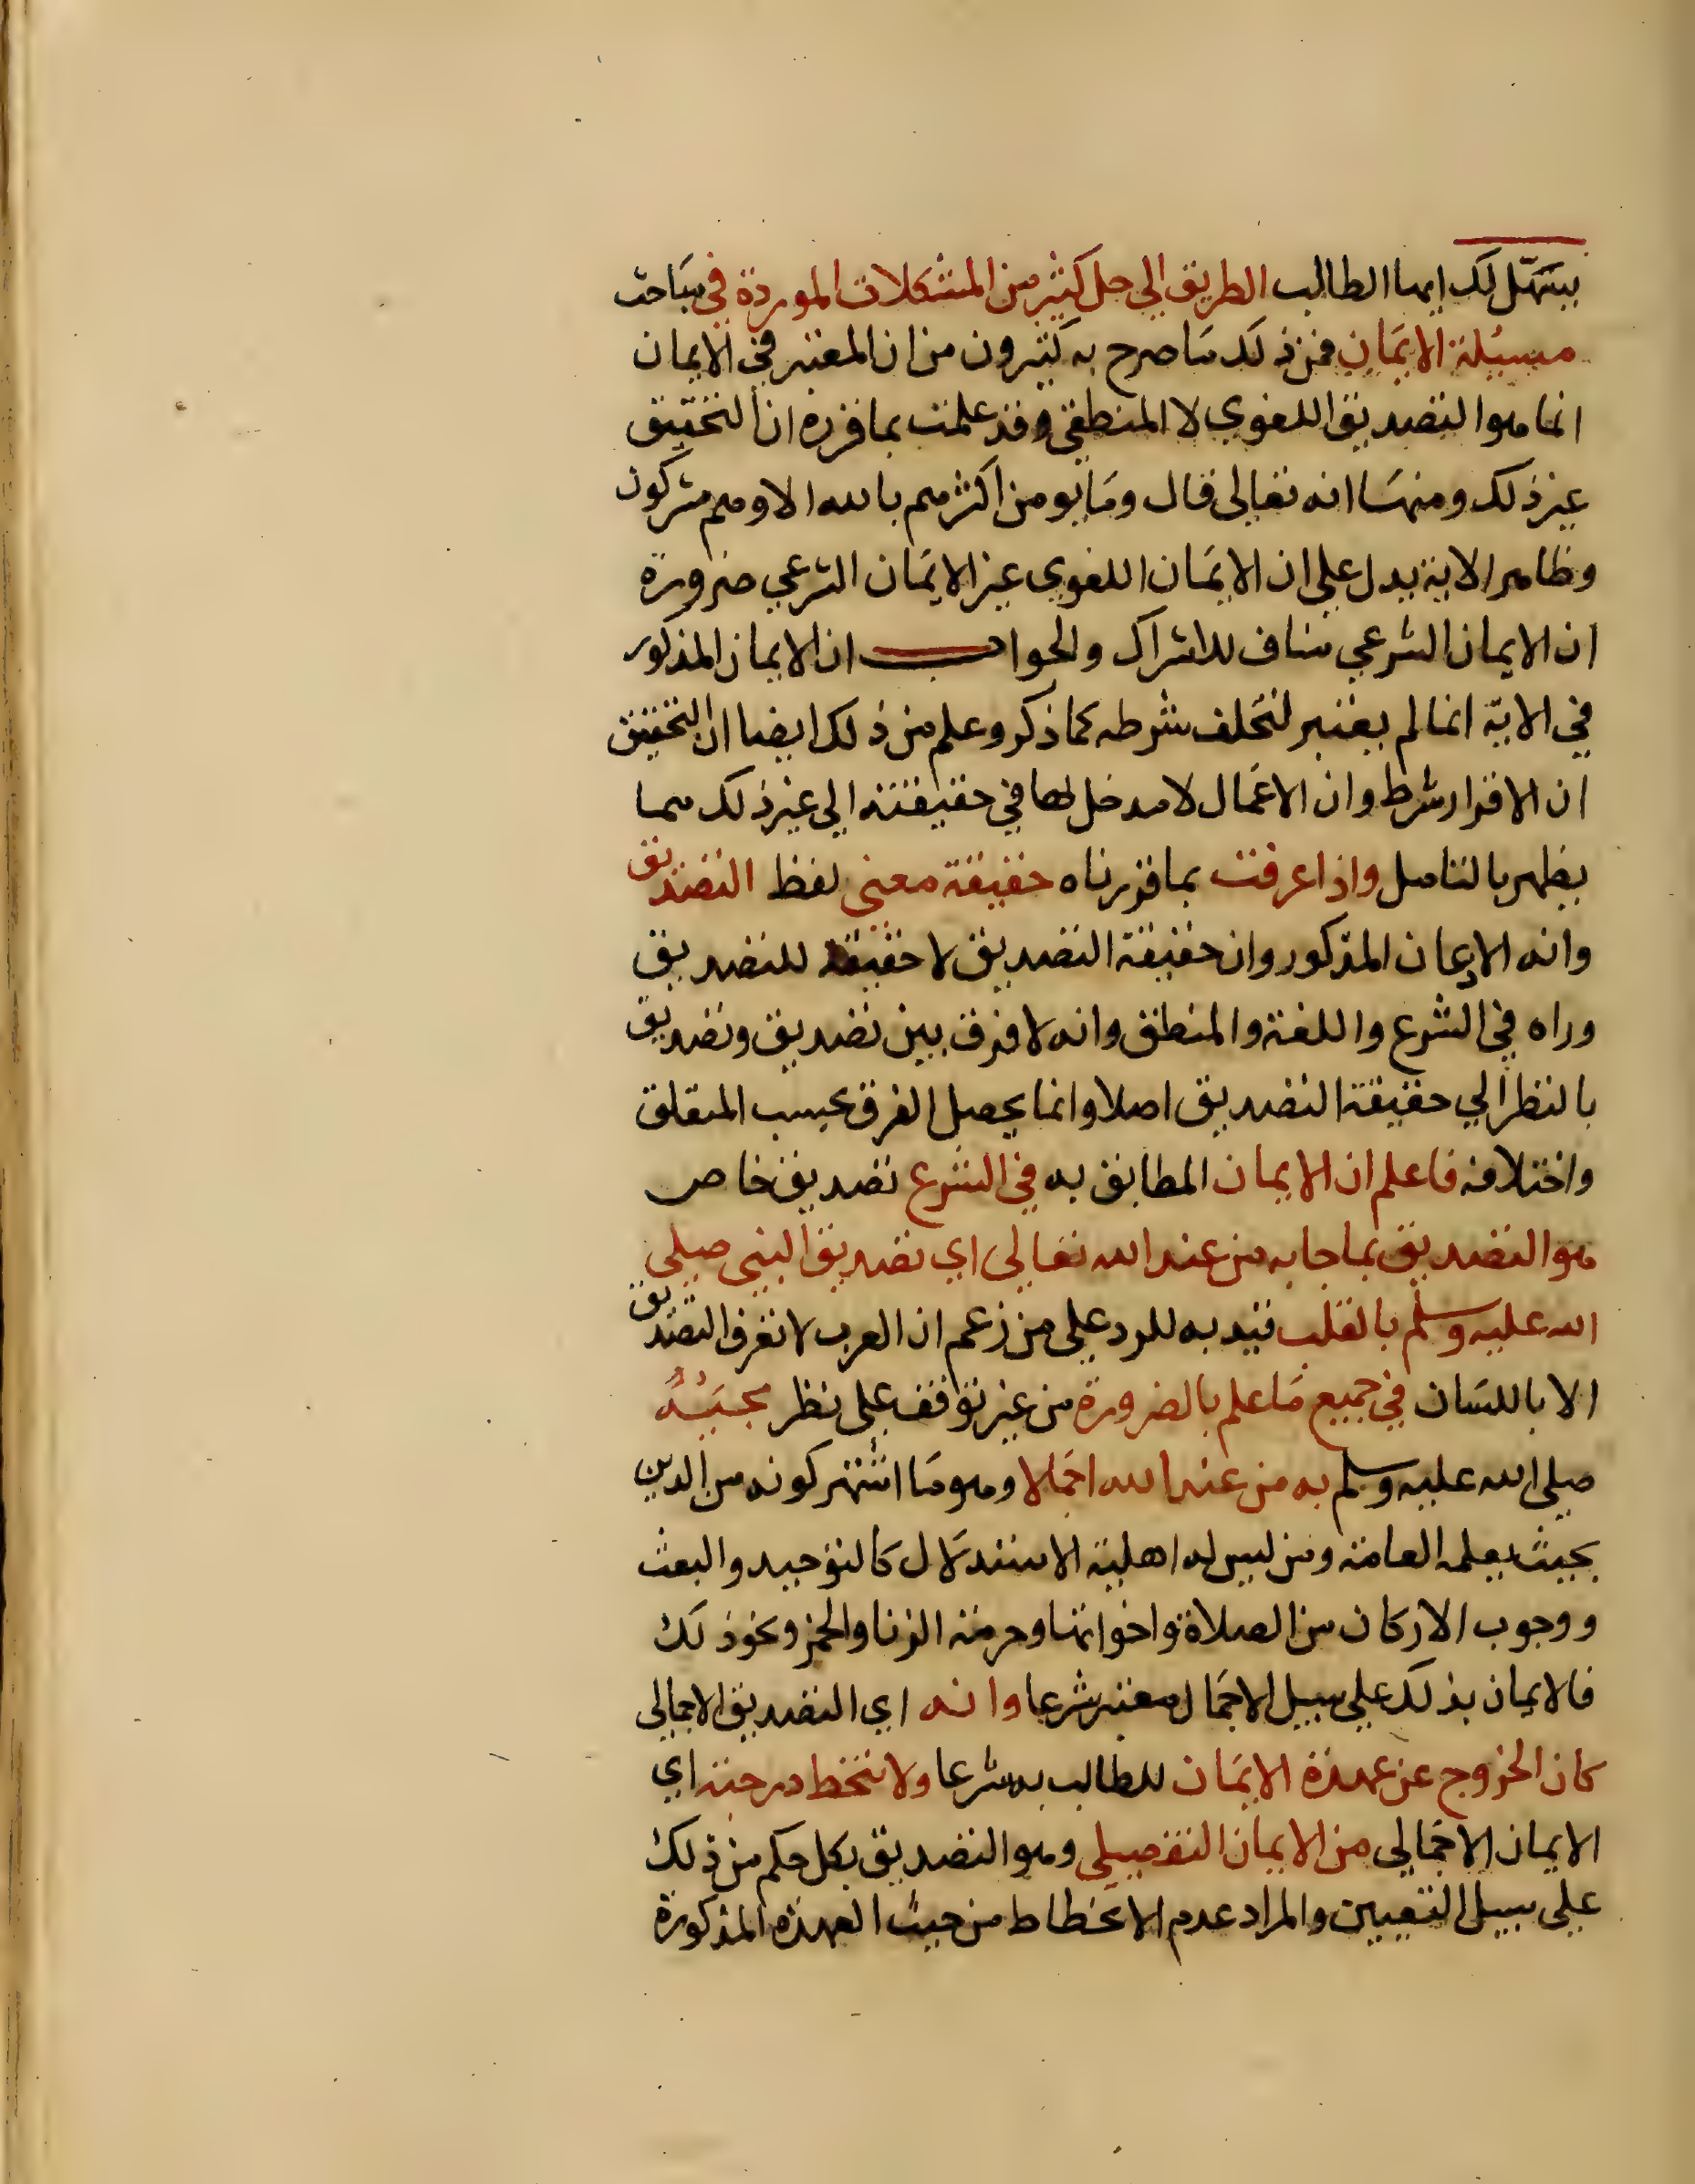 يسهّل لك ايها الطالب الطريق الي حل كثير من المشكلات الموردة في مباحث
مسئلة الايمان فمن ذلك ما صرح به كثيرون من ان المعتبر في الايمان
انما هو التصديق اللغوي لا المنطقي وقد علمت بما قرره ان التحقيق
غير ذلك ومنها انه تعالى قال وما يومن اكثرهم بالله الا وهم مشركون
وظاهر الاية يدل على ان الايمان اللغوي غير الايمان الشرعي ضرورة
ان الايمان الشرعي مناف للاشراك والجواب ان الايمان المذكور
في الاية انما لم يعتبر لتخلف شرطه كما ذكر وعلم من ذلك ايضا ان التحقيق
ان الاقرار شرط وان الاعمال لا مدخل لها في حقيقته الي غير ذلك مما
يظهر بالتامل واذا عرفت بما قررناه حقيقة معني لفظ التصديق
وانه الاذعان المذكور وان حقيقة التصديق لا حقيقة للتصديق
وراه في الشرع واللغة والمنطق وانه لا فرق بين تصديق وتصديق
بالنظر الي حقيقة التصديق اصلا وانما يحصل الفرق بحسب المتعلق
واختلافه فاعلم ان الايمان المطابق به في الشرع تصديق خاص
هو التصديق بما جا به من عند الله تعالى اي تصديق النبي صلى
الله عليه وسلم بالقلب قيد به للرد على من زعم ان العرب لا تعرف التصديق
الا باللسان في جميع ما علم بالضرورة من غير توقف على نظر مجيئُه
صلى الله عليه وسلم به من عند الله اجمالا وهو ما اشتهر كونه من الدين
بحيث يعلمه العامة ومن ليس له اهلية الاستدلال كالتوحيد والبعث
ووجوب الاركان من الصلاة واخواتها وحرمة الزنا والخمر ونحو ذلك
فالايمان بذلك على سبيل الاجمال معتبر شرعا وانه اي التصديق الاجمالى
كان الخروج عن عهدة الايمان للطالب به شرعا ولا تنحط درجته اي
الايمان الاجمالى من الايمان التفصيلى وهو التصديق بكل حكم من ذلك
على سبيل التعيين والمراد عدم الانحطاط من حيث العهدة المذكورة